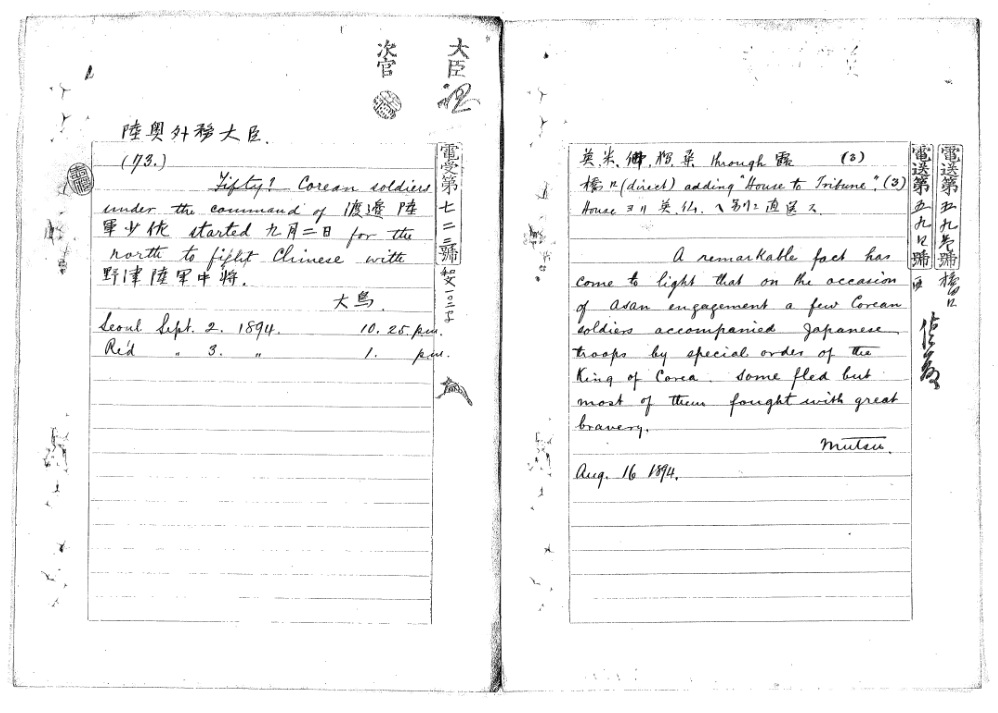 大臣
次官
陸奥外務大臣.
(73.)
電受第七二三號
Fifty? Corean soldiers
under the command of 渡邊陸
軍少佐 started 九月二日 for the
north to fight Chinese with
野津陸軍中将.
大鳥
Seoul Sept. 2. 1894. 10. 25. p.m.
Re'd " 3. " 1. p.m.
電送第五九 號
電送第五九 號
英 米, 佛, through (3)
(direct) adding "House to Tribune". (3)
House ヨリ英仏,
A remarkable fact has
come to light that on the occasion
of Asan engagement a few Corean
soldiers accompanied Japanese
troops by special order of the
King of Corea. Some fled but
most of them fought with great
bravery.
Mutsu.
Aug. 16 1894.